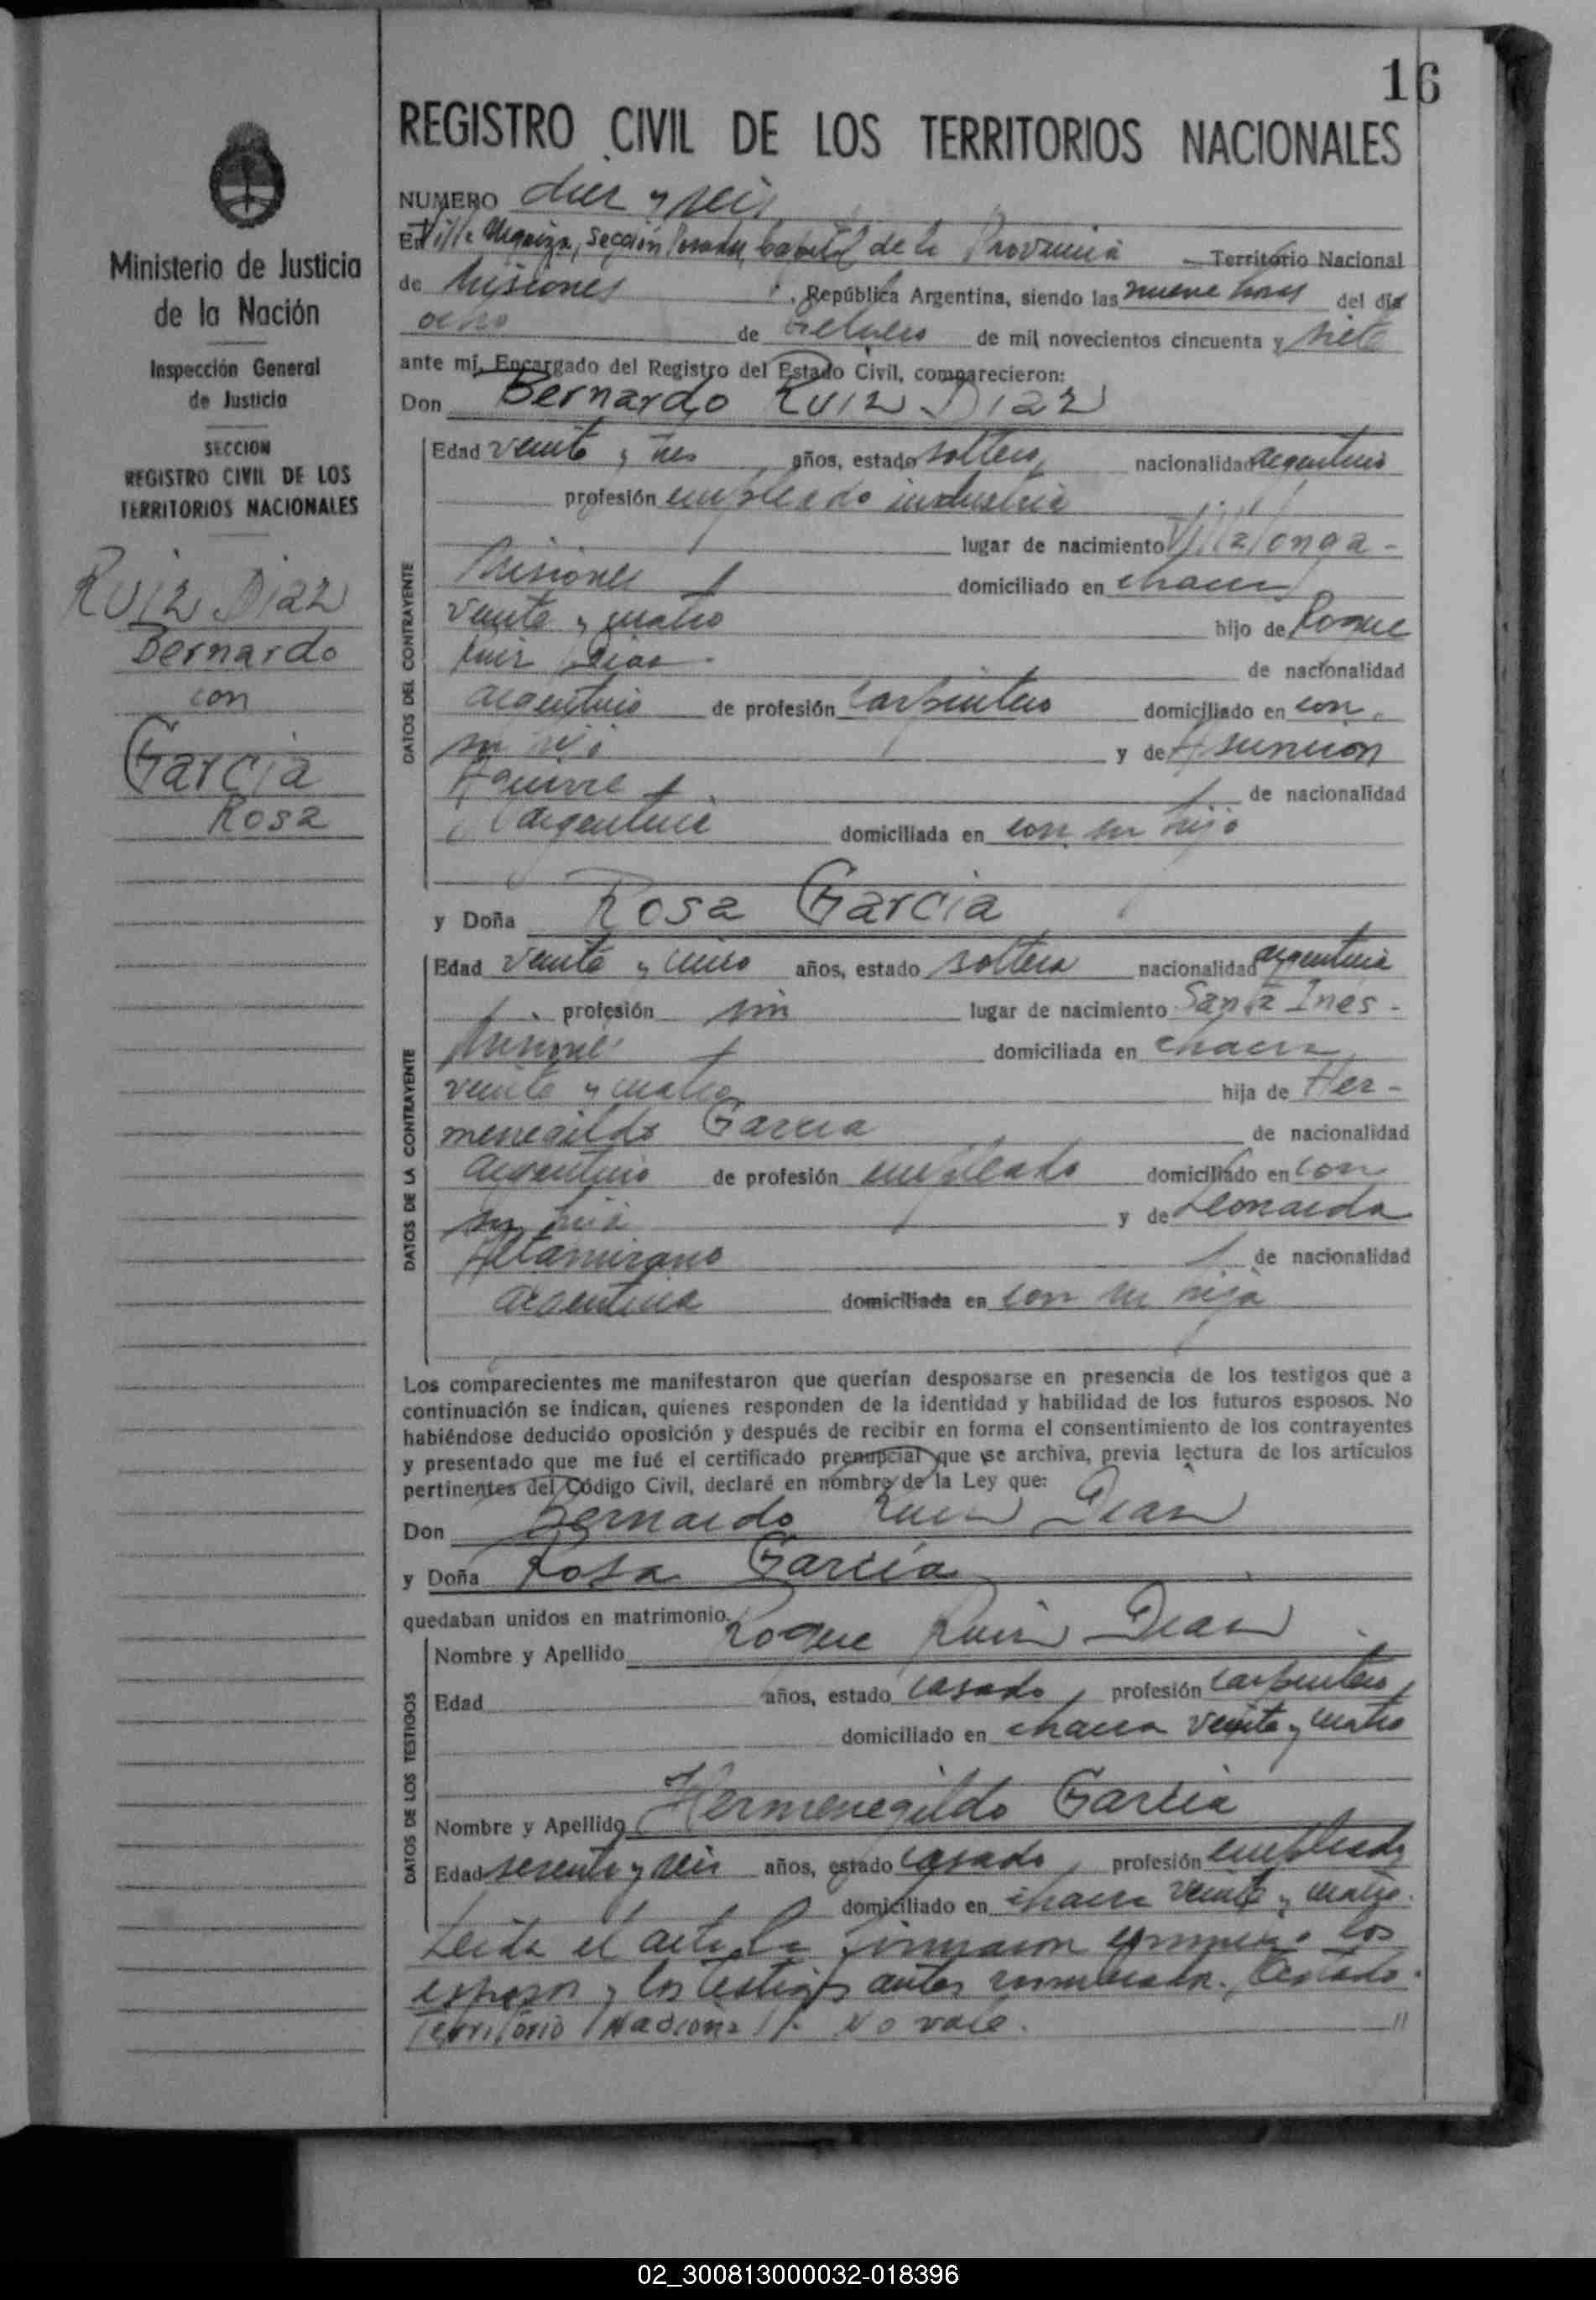 16
REGISTRO CIVIL DE LOS TERRITORIOS NACIONALES
NUMERO diez y seis
En Villa Urquiza, Sección Posadas, Capital de la Provincia Territorio Nacional
de Misiones, República Argentina, siendo las nueve horas del día
ocho de Febrero de mil novecientos cincuenta y siete
ante mí, Encargado del Registro del Estado Civil, comparecieron:
Don Bernardo Ruiz Diaz
Edad veinte y tres años, estado soltero, nacionalidad argentino
profesión empleado industria
lugar de nacimiento Villalonga -
Misiones domiciliado en chacra
veinte y cuatro hijo de Roque
Ruiz Diaz. de nacionalidad
argentino de profesión carpintero domiciliado en con
su hijo y de Asuncion
Aguirre de nacionalidad
argentina domiciliada en con su hijo
y Doña Rosa Garcia
Edad veinte y cinco años, estado soltera nacionalidad argentina
profesión sin lugar de nacimiento Santa Ines -
Misiones domiciliada en chacra
veinte y cuatro hija de Her-
menegildo Garcia de nacionalidad
argentino de profesión empleado domiciliado en con
su hija y de Leonarda
Altamirano de nacionalidad
argentina domiciliada en con su hija
Los comparecientes me manifestaron que querían desposarse en presencia de los testigos que a
continuación se indican, quienes responden de la identidad y habilidad de los futuros esposos. No
habiéndose deducido oposición y después de recibir en forma el consentimiento de los contrayentes
y presentado que me fué el certificado prenupcial que se archiva, previa lectura de los artículos
pertinentes del Código Civil, declaré en nombre de la Ley que:
Don Bernardo Ruiz Diaz
y Doña Rosa García
quedaban unidos en matrimonio.
Nombre y Apellido Roque Ruiz Diaz
Edad años, estado casado, profesión carpintero,
domiciliado en chacra veinte y cuatro
Nombre y Apellido Hermenegildo Garcia
Edad sesenta y seis años, estado casado, profesión empleado
domiciliado en chacra veinte y cuatro.
Leida el acta la firmaron conmigo los
esposos y los testigos antes nombrados. Testado:
Territorio Nacional. No vale. "
DATOS DEL CONTRAYENTE
DATOS DE LA CONTRAYENTE
DATOS DE LOS TESTIGOS
Ministerio de Justicia
de la Nación
Inspección General
de Justicia
SECCION
REGISTRO CIVIL DE LOS
TERRITORIOS NACIONALES
Ruiz Diaz
Bernardo
con
Garcia
Rosa
02_300813000032-018396